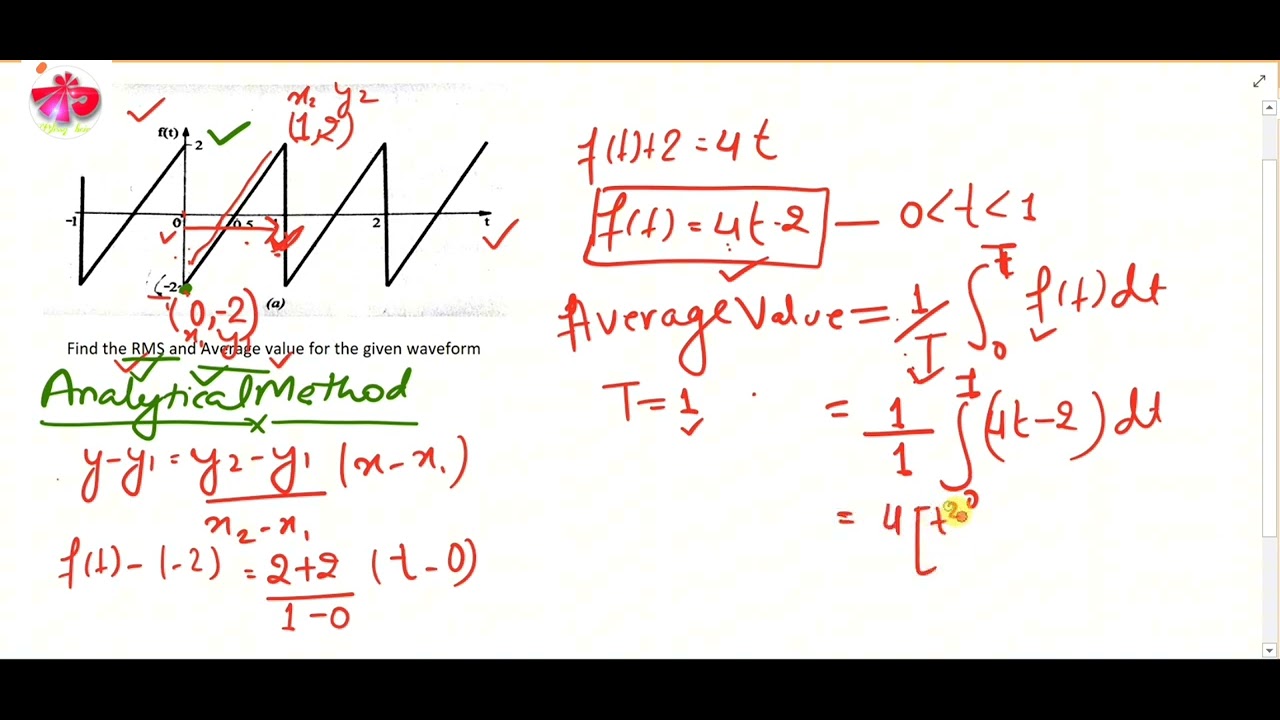 f(t)
2
-1
0
0.5
2
t
-2
(a)
x₂ y₂
(1,2)
(0,-2)
x₁ y₁
Find the RMS and Average value for the given waveform
Analytical Method
y-y₁ = y₂-y₁/x₂-x₁ (x-x₁)
f(t)-(-2) = 2+2/1-0 (t-0)
f(t)+2 = 4t
f(t) = 4t-2 — 0<t<1
Average Value = 1/T ∫₀ᵀ f(t) dt
T = 1
= 1/1 ∫₀¹ (4t-2) dt
= 4[t²